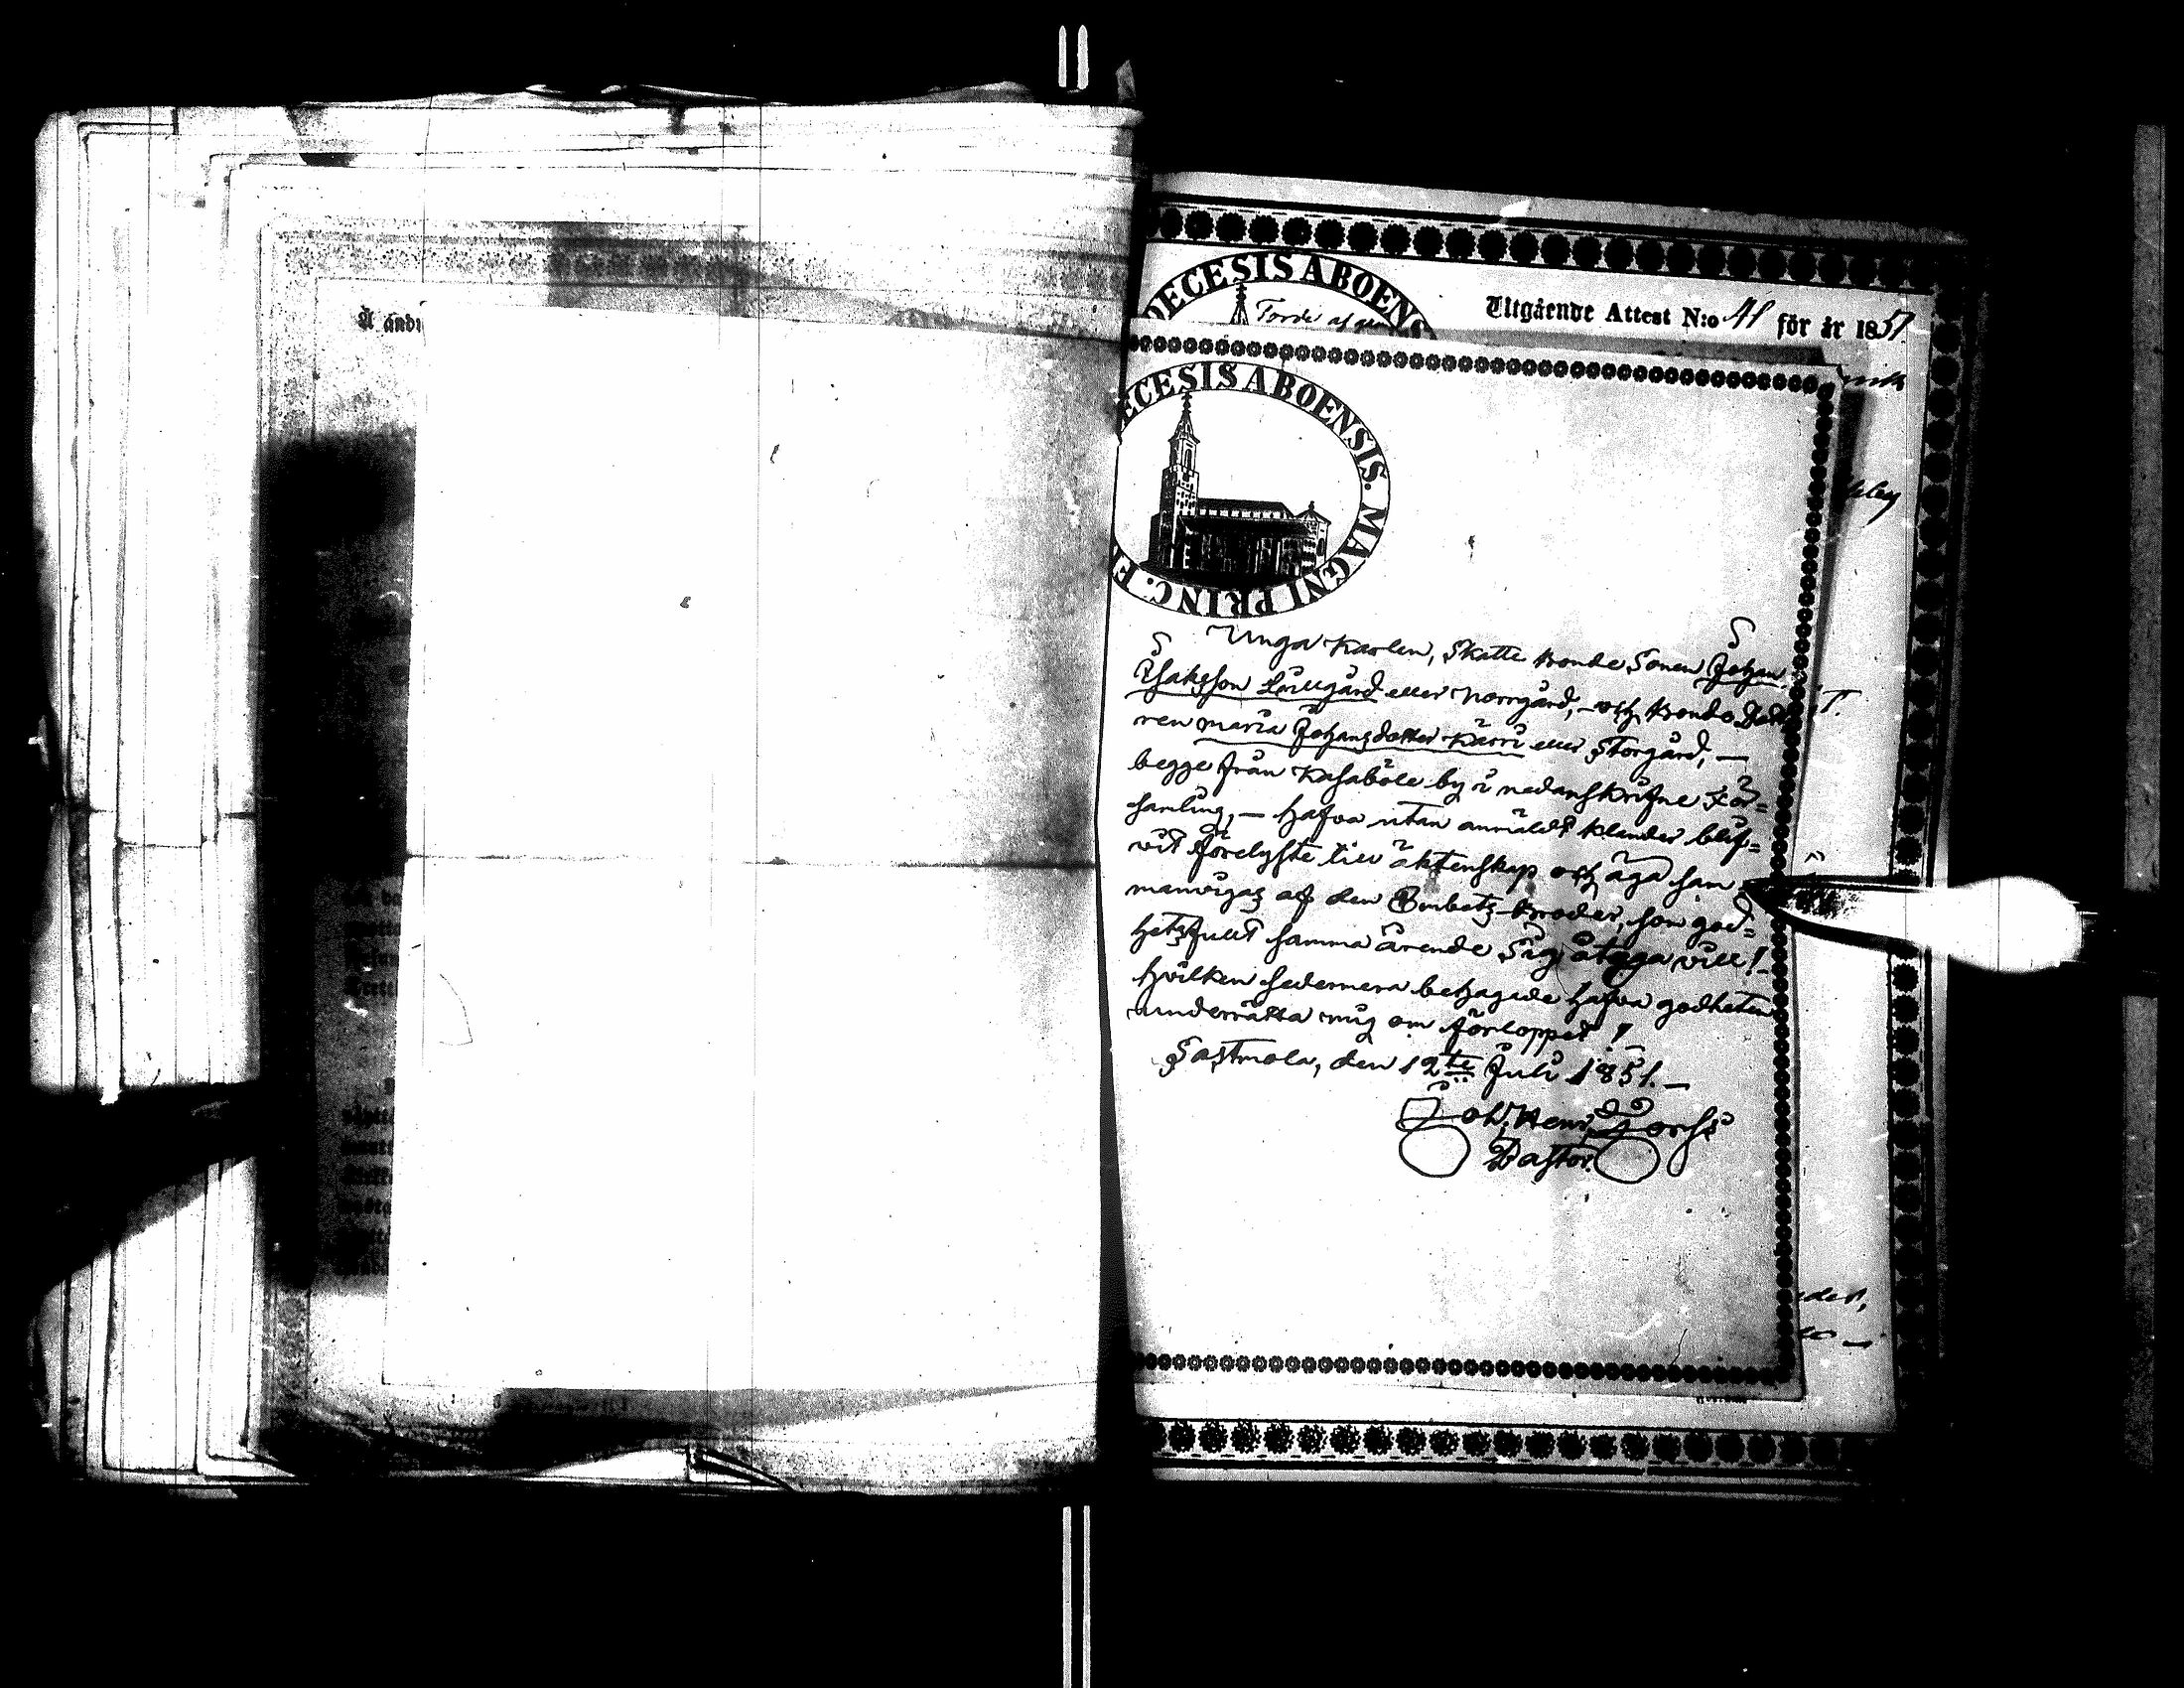 DECESIS ABOENS
Utgående Attest N:o 41 för år 1851.
ECESIS ABOENSIS. MAGNI PRINC. F
Unga Karlen, Skatte Bonde Sonen Johan
Isaksson Lillgård eller Norrgård, – och Bonde Dott
ren Maria Johansdotter Kärri eller Storgård, —
begge från Kasaböle by i nedanskrifne För=
samling, — hafva utan anmäldt klander blif=
vit förelyste till äktenskap och äga sam
manvigas af den Embets-Broder, som god=
hetsfullt samma ärende Sig åtaga vill! –
hvilken sedermera behagade hafva godheten
underrätta mig om förloppet!
Sastmola, den 12te Juli 1851. —
Joh. Henr. Forss
Pastor.